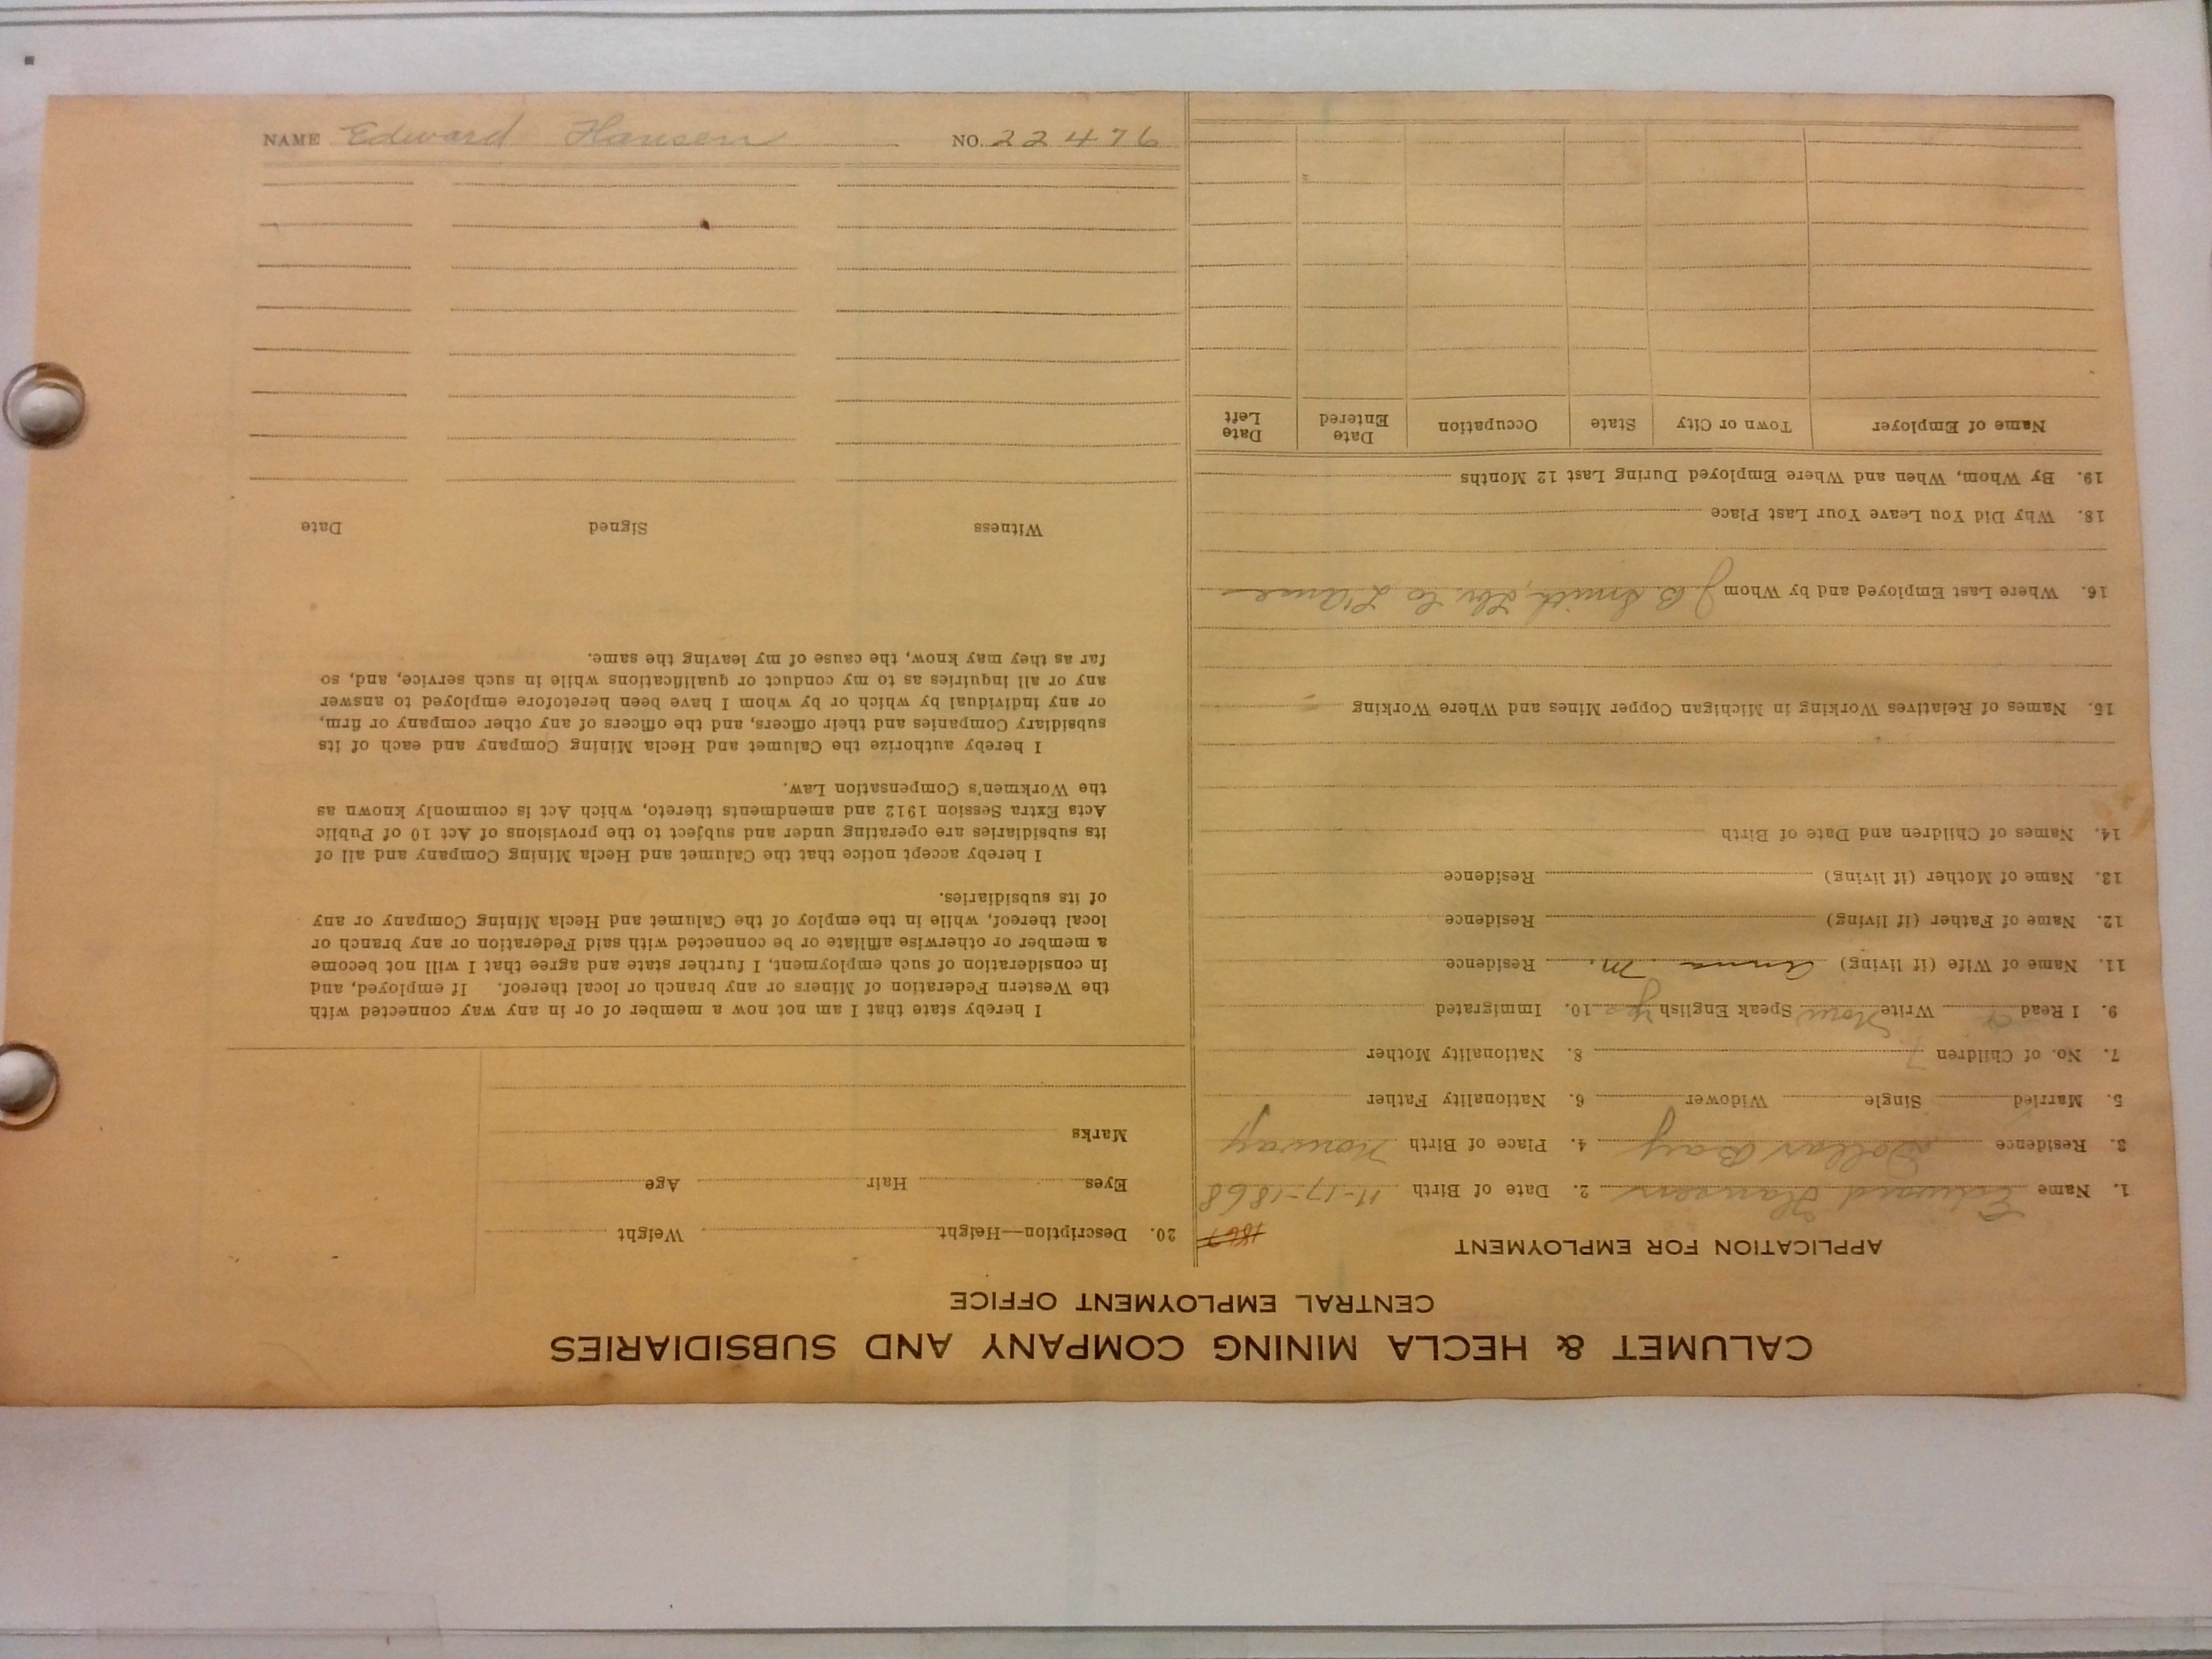 CALUMET & HECLA MINING COMPANY AND SUBSIDIARIES
CENTRAL EMPLOYMENT OFFICE
APPLICATION FOR EMPLOYMENT
1867
1. Name Edward Hansen 2. Date of Birth 11-17-1868
3. Residence Dollar Bay 4. Place of Birth Norway
5. Married Single Widower 6. Nationality Father
7. No. of Children 7 8. Nationality Mother
9. I Read Write Speak English yes 10. Immigrated
11. Name of Wife (if living) Anna M. Residence
12. Name of Father (if living) Residence
13. Name of Mother (if living) Residence
14. Names of Children and Date of Birth
15. Names of Relatives Working in Michigan Copper Mines and Where Working
16. Where Last Employed and by Whom J. B. Smith, Co L'Anse
18. Why Did You Leave Your Last Place
19. By Whom, When and Where Employed During Last 12 Months
Name of Employer Town or City State Occupation Date Entered Date Left
20. Description—Height Weight
Eyes Hair Age
Marks
I hereby state that I am not now a member of or in any way connected with
the Western Federation of Miners or any branch or local thereof. If employed, and
in consideration of such employment, I further state and agree that I will not become
a member or otherwise affiliate or be connected with said Federation or any branch or
local thereof, while in the employ of the Calumet and Hecla Mining Company or any
of its subsidiaries.
I hereby accept notice that the Calumet and Hecla Mining Company and all of
its subsidiaries are operating under and subject to the provisions of Act 10 of Public
Acts Extra Session 1912 and amendments thereto, which Act is commonly known as
the Workmen's Compensation Law.
I hereby authorize the Calumet and Hecla Mining Company and each of its
subsidiary Companies and their officers, and the officers of any other company or firm,
or any individual by which or by whom I have been heretofore employed to answer
any or all inquiries as to my conduct or qualifications while in such service, and, so
far as they may know, the cause of my leaving the same.
Witness Signed Date
NAME Edward Hansen NO. 22476